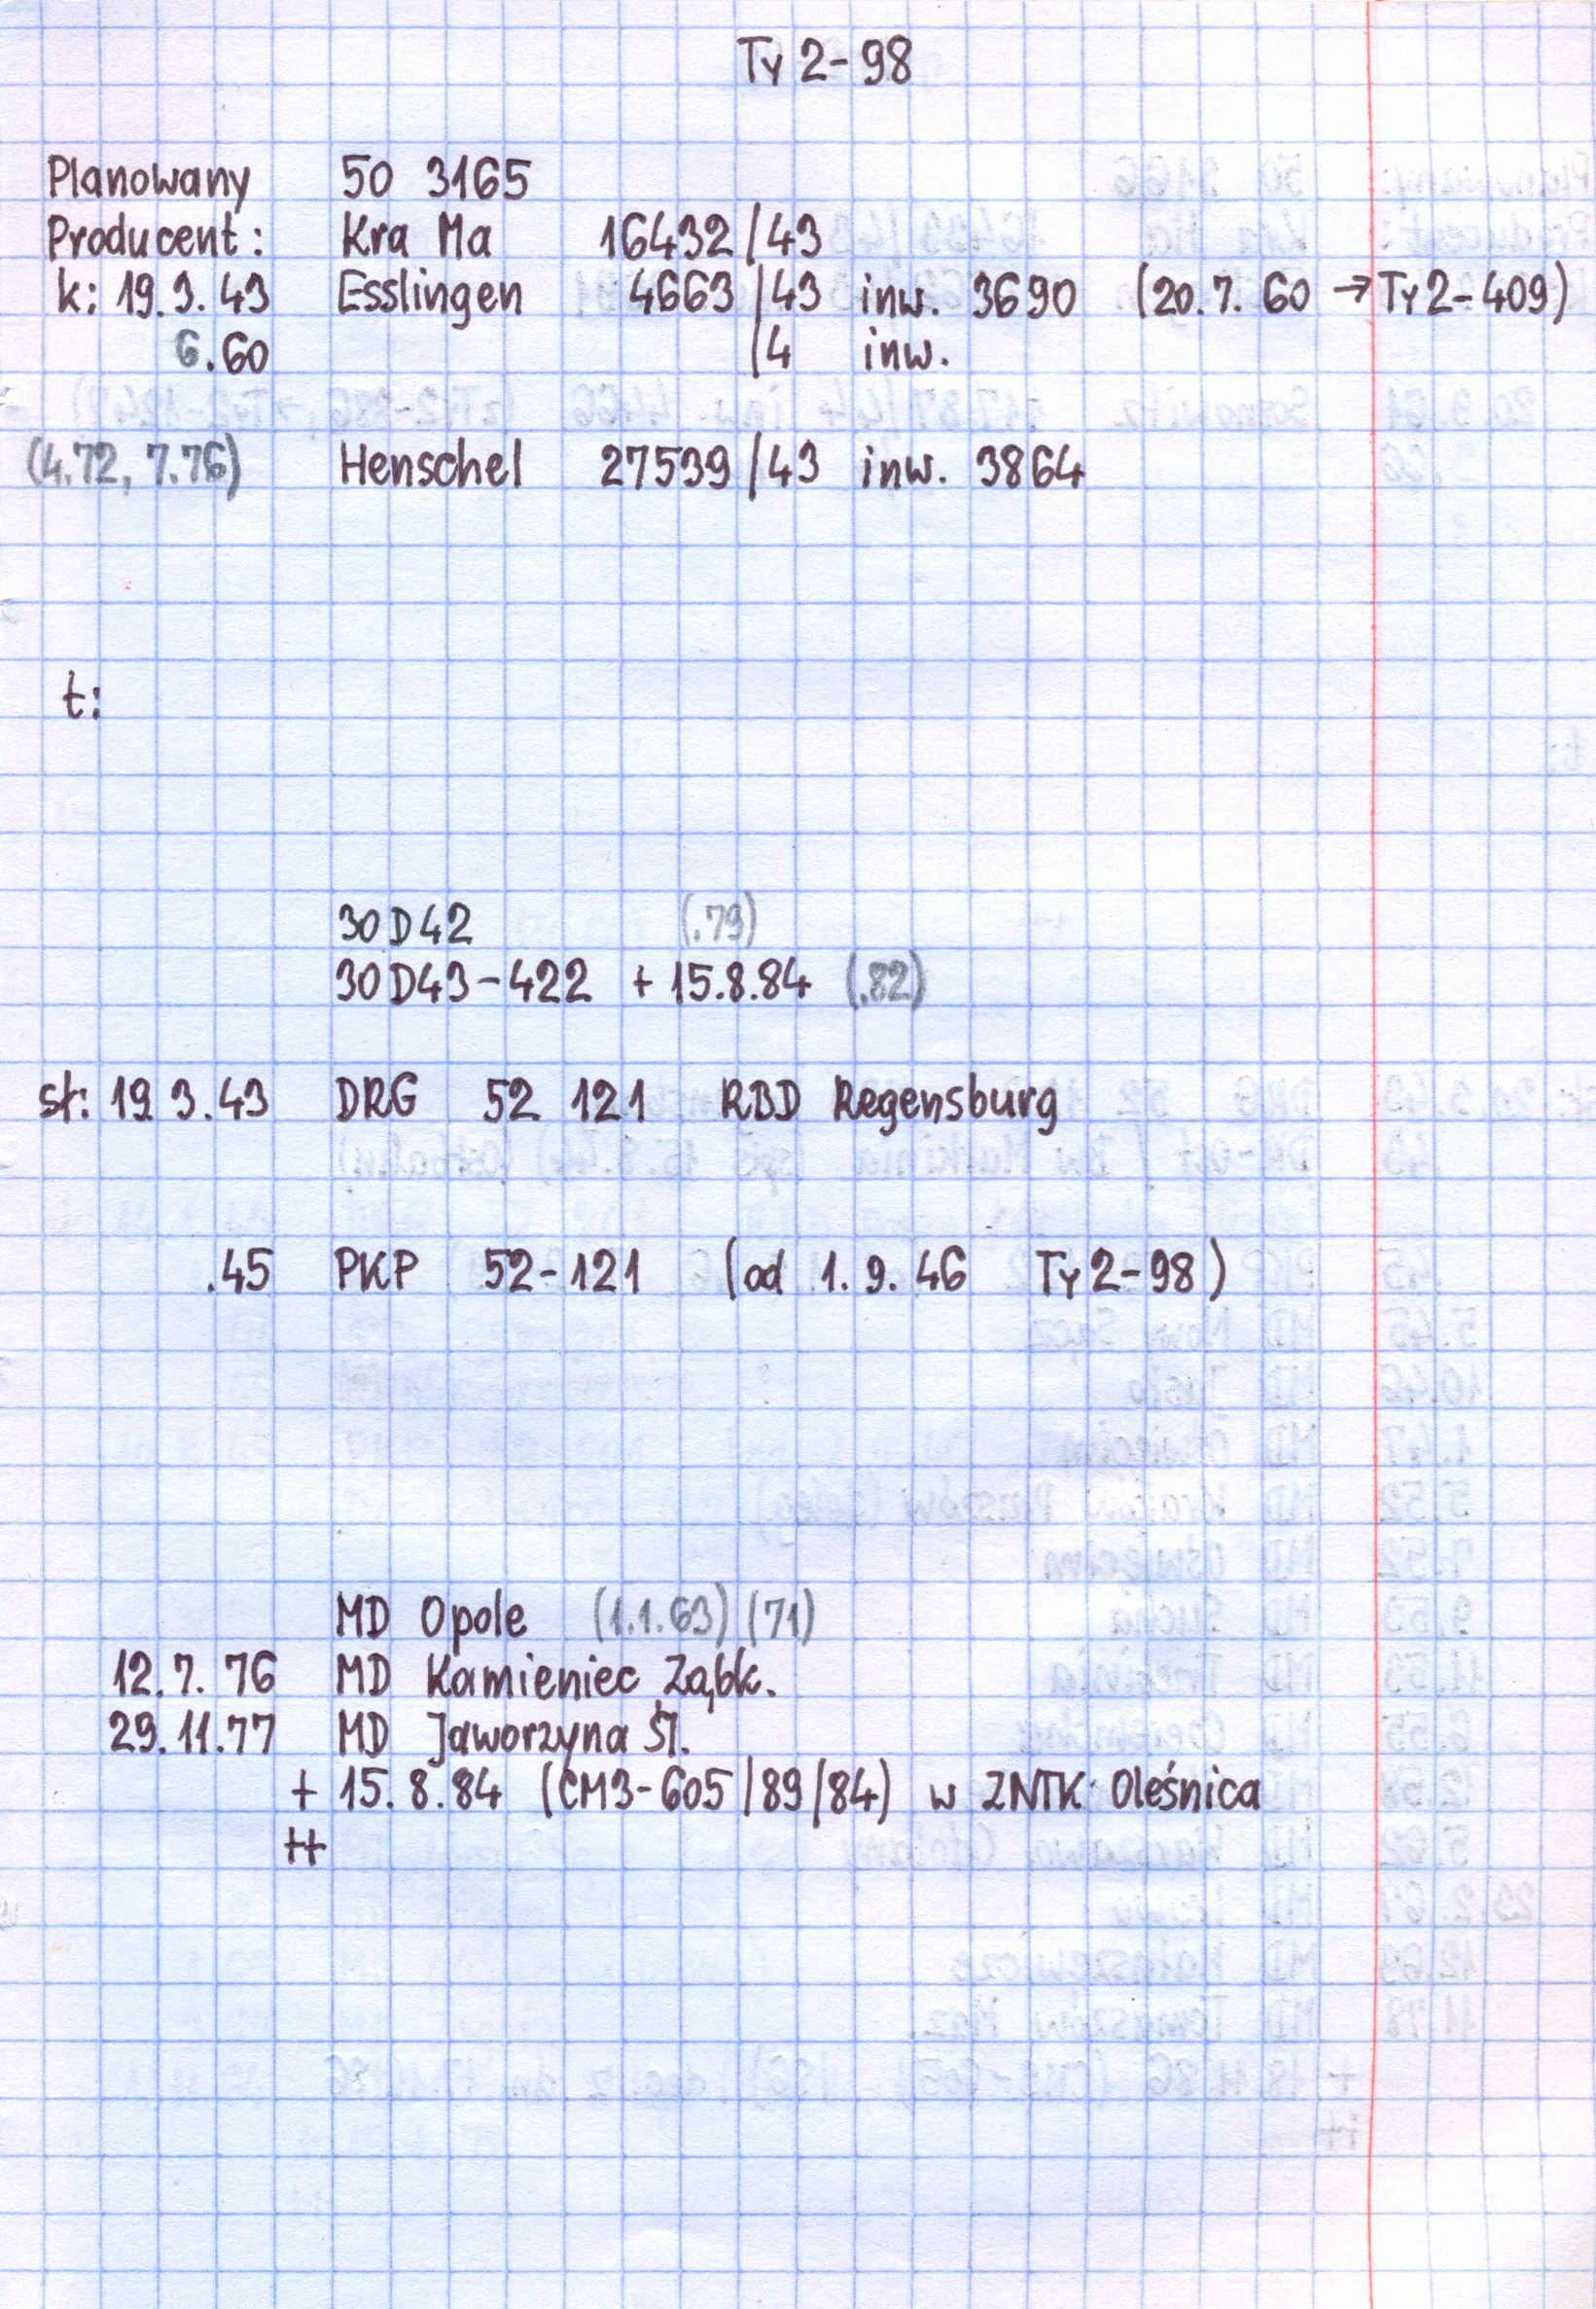 Ty 2-98
Planowany 50 3165
Producent: Kra Ma 16432/43
k: 19.3.43 Esslingen 4663/43 inw. 3690 (20.7.60 → Ty 2-409)
6.60 /4 inw.
(4.72, 7.76) Henschel 27539/43 inw. 3864
t:
30D42 (.79)
30D43-422 + 15.8.84 (.82)
st: 19 3.43 DRG 52 121 RBD Regensburg
.45 PKP 52-121 (od 1.9.46 Ty 2-98)
MD Opole (1.1.63) (71)
12.7.76 MD Kamieniec Ząbk.
29.11.77 MD Jaworzyna Śl.
+ 15.8.84 (CM3-605/89/84) w ZNTK Oleśnica
++